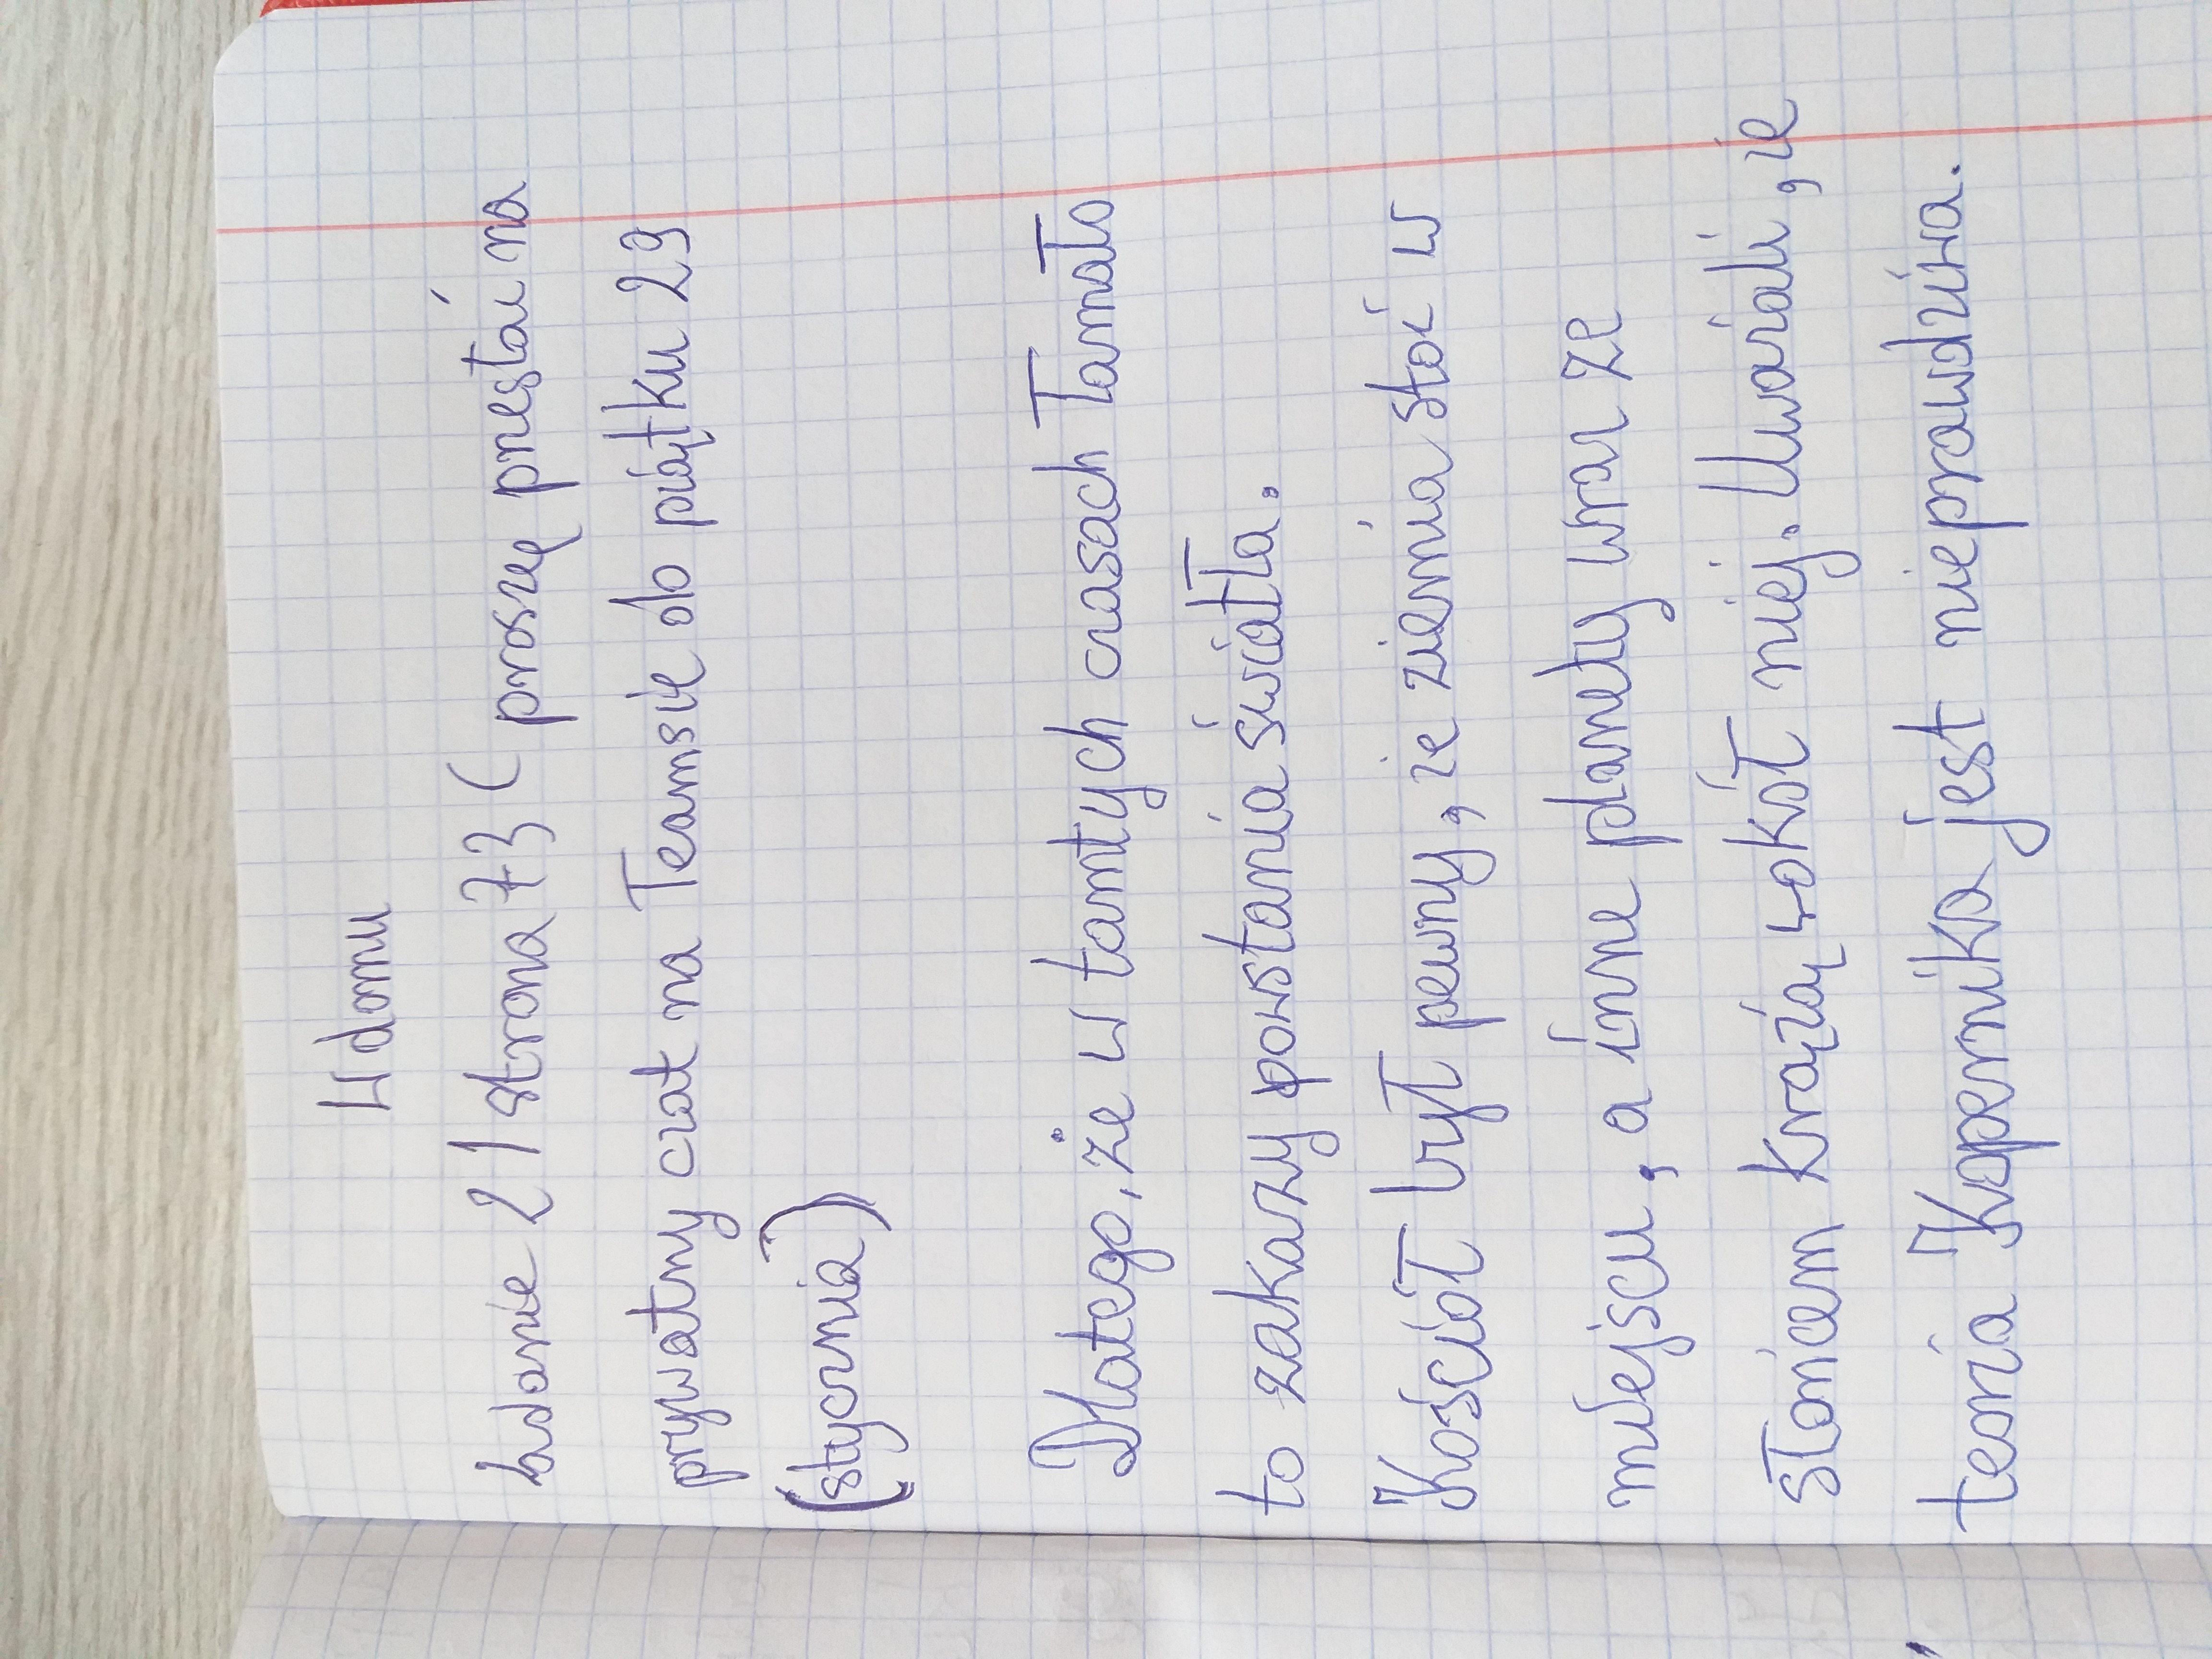 W domu
Zadanie 2 / strona 73 ( proszę przestać na
prywatny czat na Teamsie do piątku 29
(stycznia)
Dlatego, że w tamtych czasach łamało
to zakazy powstania światła.
Kościół był pewny, że ziemia stoi w
miejscu, a inne planety wraz ze
słońcem krążą wokół niej. Uważali, że
teoria Kopernika jest nieprawdziwa.